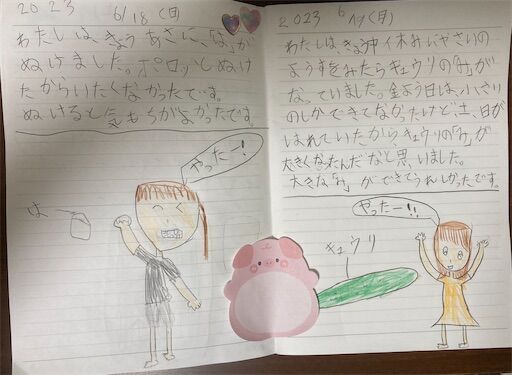 2023 6/18(日)
わたしは、きょうあさに、「は」が
ぬけました。ポロッとぬけ
たからいたくなかったです。
ぬけると気もちがよかったです。
やったー!
は
2023 6
わたしは、きょう中休みにやさいの
ようすをみたらキュウリの「み」が
なっていました。金よう日は、小さい
のしかできてなかったけど、土、日が
はれていたから、キュウリの「み」が
大きくなったんだなと思いました。
大きな「み」ができてうれしかったです。
やったー!!
キュウリ